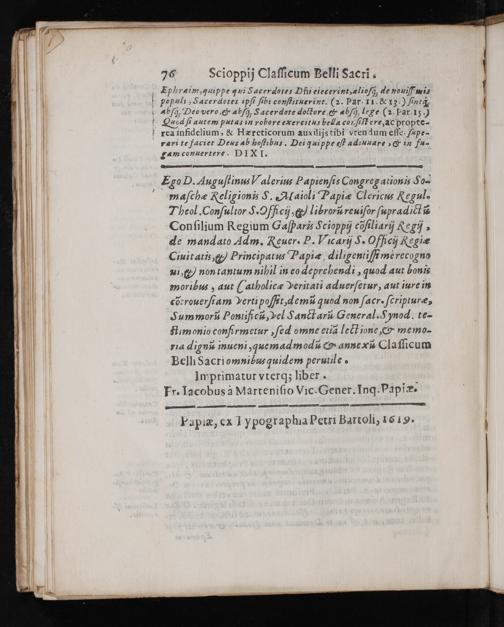 76 Scioppij Classicum Belli Sacri.
Ephraim, quippe qui Sacerdotes Dñi eiecerint, aliosq, de nouissimis
populi, Sacerdotes ipsi sibi constituerint. (2. Par. 11. & 13.) sintq,
absq, Deo vero, & absq, Sacerdote doctore, & absq, lege (2. Par. 15.)
Quod si autem putas in robore exercitus bella cōsistere, ac propte-
rea infidelium, & Hæreticorum auxilijs tibi vtendum esse. supe-
rari te faciet Deus ab hostibus. Dei quippe est adiuuare, & in fu-
gam conuertere. DIXI.
Ego D. Augustinus Valerius Papiensis Congregationis So-
maschæ Religionis S. Maioli Papiæ Clericus Regul.
Theol. Consultor S. Officij, & librorū reuisor supradictū
Consilium Regium Gasparis Scioppij cōsiliarij Regij,
de mandato Adm. Reuer. P. Vicarij S. Officij Regiæ
Ciuitatis, & Principatus Papiæ, diligentissimè recogno
ui, & non tantum nihil in eo deprehendi, quod aut bonis
moribus, aut Catholicæ veritati aduersetur, aut iure in
cōtrouersiam verti possit, demū quod non sacr. scripturæ,
Summorū Pontificū, vel Sanctarū General. Synod. te-
stimonio confirmetur, sed omne etiā lectione, & memo-
ria dignū inueni, quemadmodū & annexū Classicum
Belli Sacri omnibus quidem perutile.
Imprimatur vterq; liber.
Fr. Iacobus à Martenisio Vic. Gener. Inq. Papiæ.
Papiæ, ex Typographia Petri Bartoli, 1619.